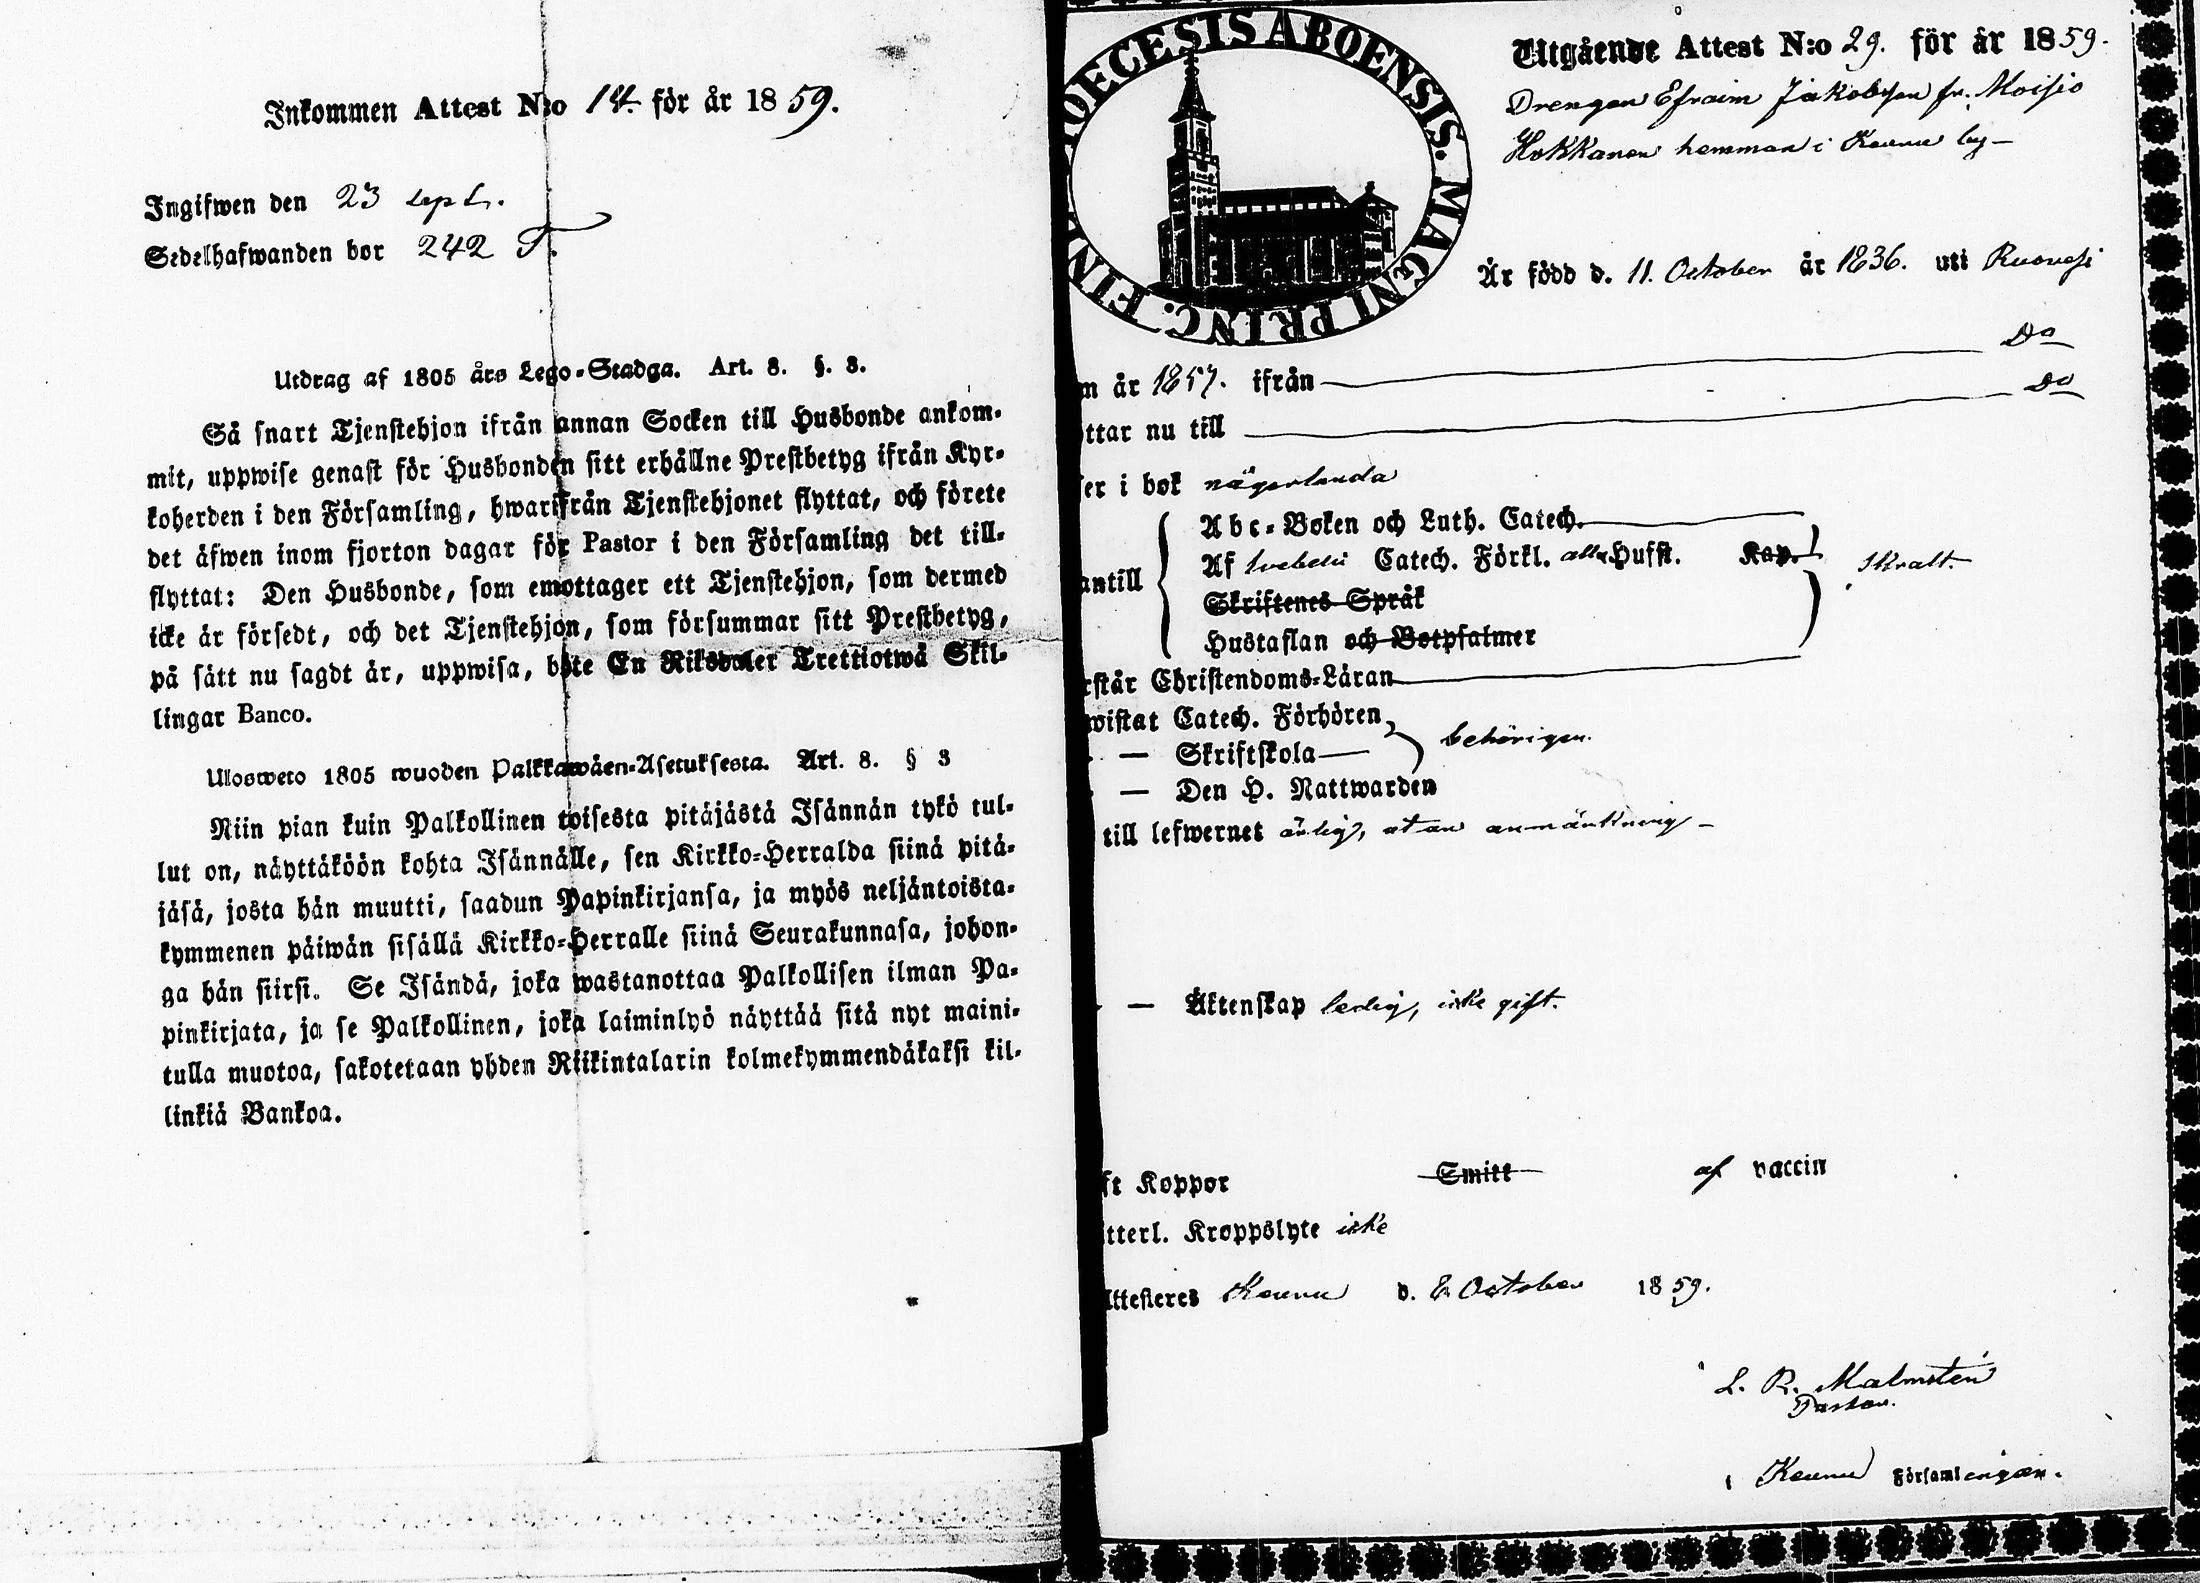 Inkommen Attest N:o för år 1859.
Ingifwen den 23 sept.
Sedelhafwanden bor 242 T.
Utdrag af 1805 års Lego-Stadga. Art. 8. §. 3.
Så snart Tjenstehjon ifrån annan Socken till Husbonde ankom-
mit, uppwise genast för Husbonden sitt erhållne Prestbetyg ifrån Kyr-
koherden i den Församling, hwarifrån Tjenstehjonet flyttat, och förete
det äfwen inom fjorton dagar för Pastor i den Församling det till-
flyttat: Den Husbonde, som emottager ett Tjenstehjon, som dermed
icke är försedt, och det Tjenstehjon, som försummar sitt Prestbetyg,
på sätt nu sagdt är, uppwisa, böte En Riksdaler Trettiotwå Skil-
lingar Banco.
Ulosweto 1805 wuoden Palkkawäen-Asetuksesta. Art. 8. § 3
Niin pian kuin Palkollinen toisesta pitäjästä Isännän tykö tul-
lut on, näyttäköön kohta Isännälle, sen Kirkko-Herralda siinä pitä-
jäsä, josta hän muutti, saadun Papinkirjansa, ja myös neljäntoista-
kymmenen päiwän sisällä Kirkko-Herralle siinä Seurakunnasa, johon-
ga hän siirsi. Se Isändä, joka wastanottaa Palkollisen ilman Pa-
pinkirjata, ja se Palkollinen, joka laiminlyö näyttää sitä nyt maini-
tulla muotoa, sakotetaan yhden Riikintalarin kolmekymmendäkaksi kil-
linkiä Bankoa.
OECESIS ABOENSIS. MAGNI PRINC. FIN
Utgående Attest N:o 29. för år 1859.
Drengen Efraim Jakobsson fr. Moisio
Hokkanen hemman i Keuru by
Är född d. 11. October år 1836. uti Ruovesi
m år 1857. ifrån Do
ttar nu till Do
ser i bok någorlunda
antill
Abc-Boken och Luth. Catech.
Af Svebelii Catech. Förkl. alla Hufst. Kap. Skralt.
Skriftenes Språk
Hustaflan och Botpsalmer
rstår Christendoms-Läran
wistat Catech. Förhören
— Skriftskola behörigen.
— Den H. Nattwarden
till lefwernet ärlig, utan anmärkning
— Äktenskap ledig, icke gift.
ft Koppor Smitt af vaccin
tterl. Kroppslyte icke
Attesteres Keuru d. 8 October 1859.
L. R. Malmstén
Pastor.
i Keuru Församlingen.